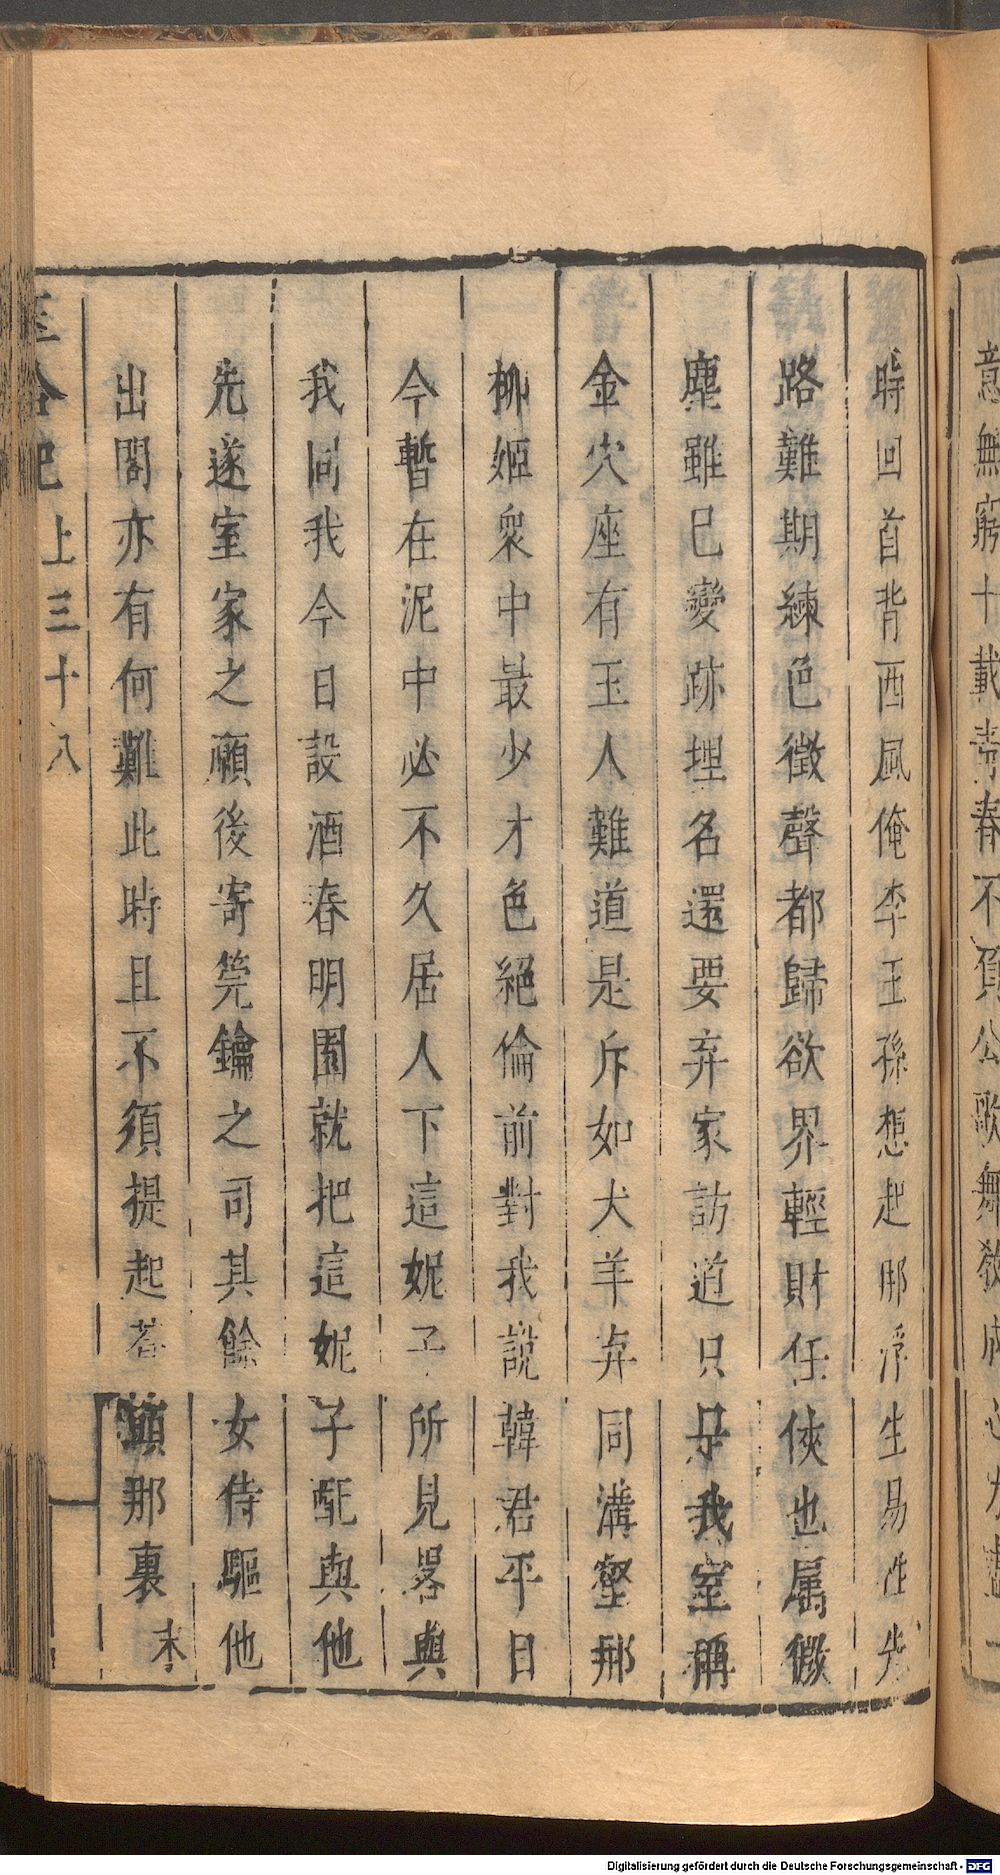 時回首背西風俺李王孫想起那浮生易往先
路難期練色徵聲都歸欲界輕財任俠也属微
塵雖已變跡埋名還要弃家訪道只是我室稱
金穴座有玉人難道是斥如犬羊弃同溝壑那
柳姬衆中最少才色絕倫前對我說韓君平日
今暫在泥中必不久居人下這妮子所見畧與
我同我今日設酒春明園就把這妮子配與他
先遂室家之願後寄筦鑰之司其餘女侍驅他
出閤亦有何難此時且不須提起蒼頭那裏末
玉合記 上三十八
意無窮十載青春不負公歌舞敎成心力盡一
Digitalisierung gefördert durch die Deutsche Forschungsgemeinschaft - DFG